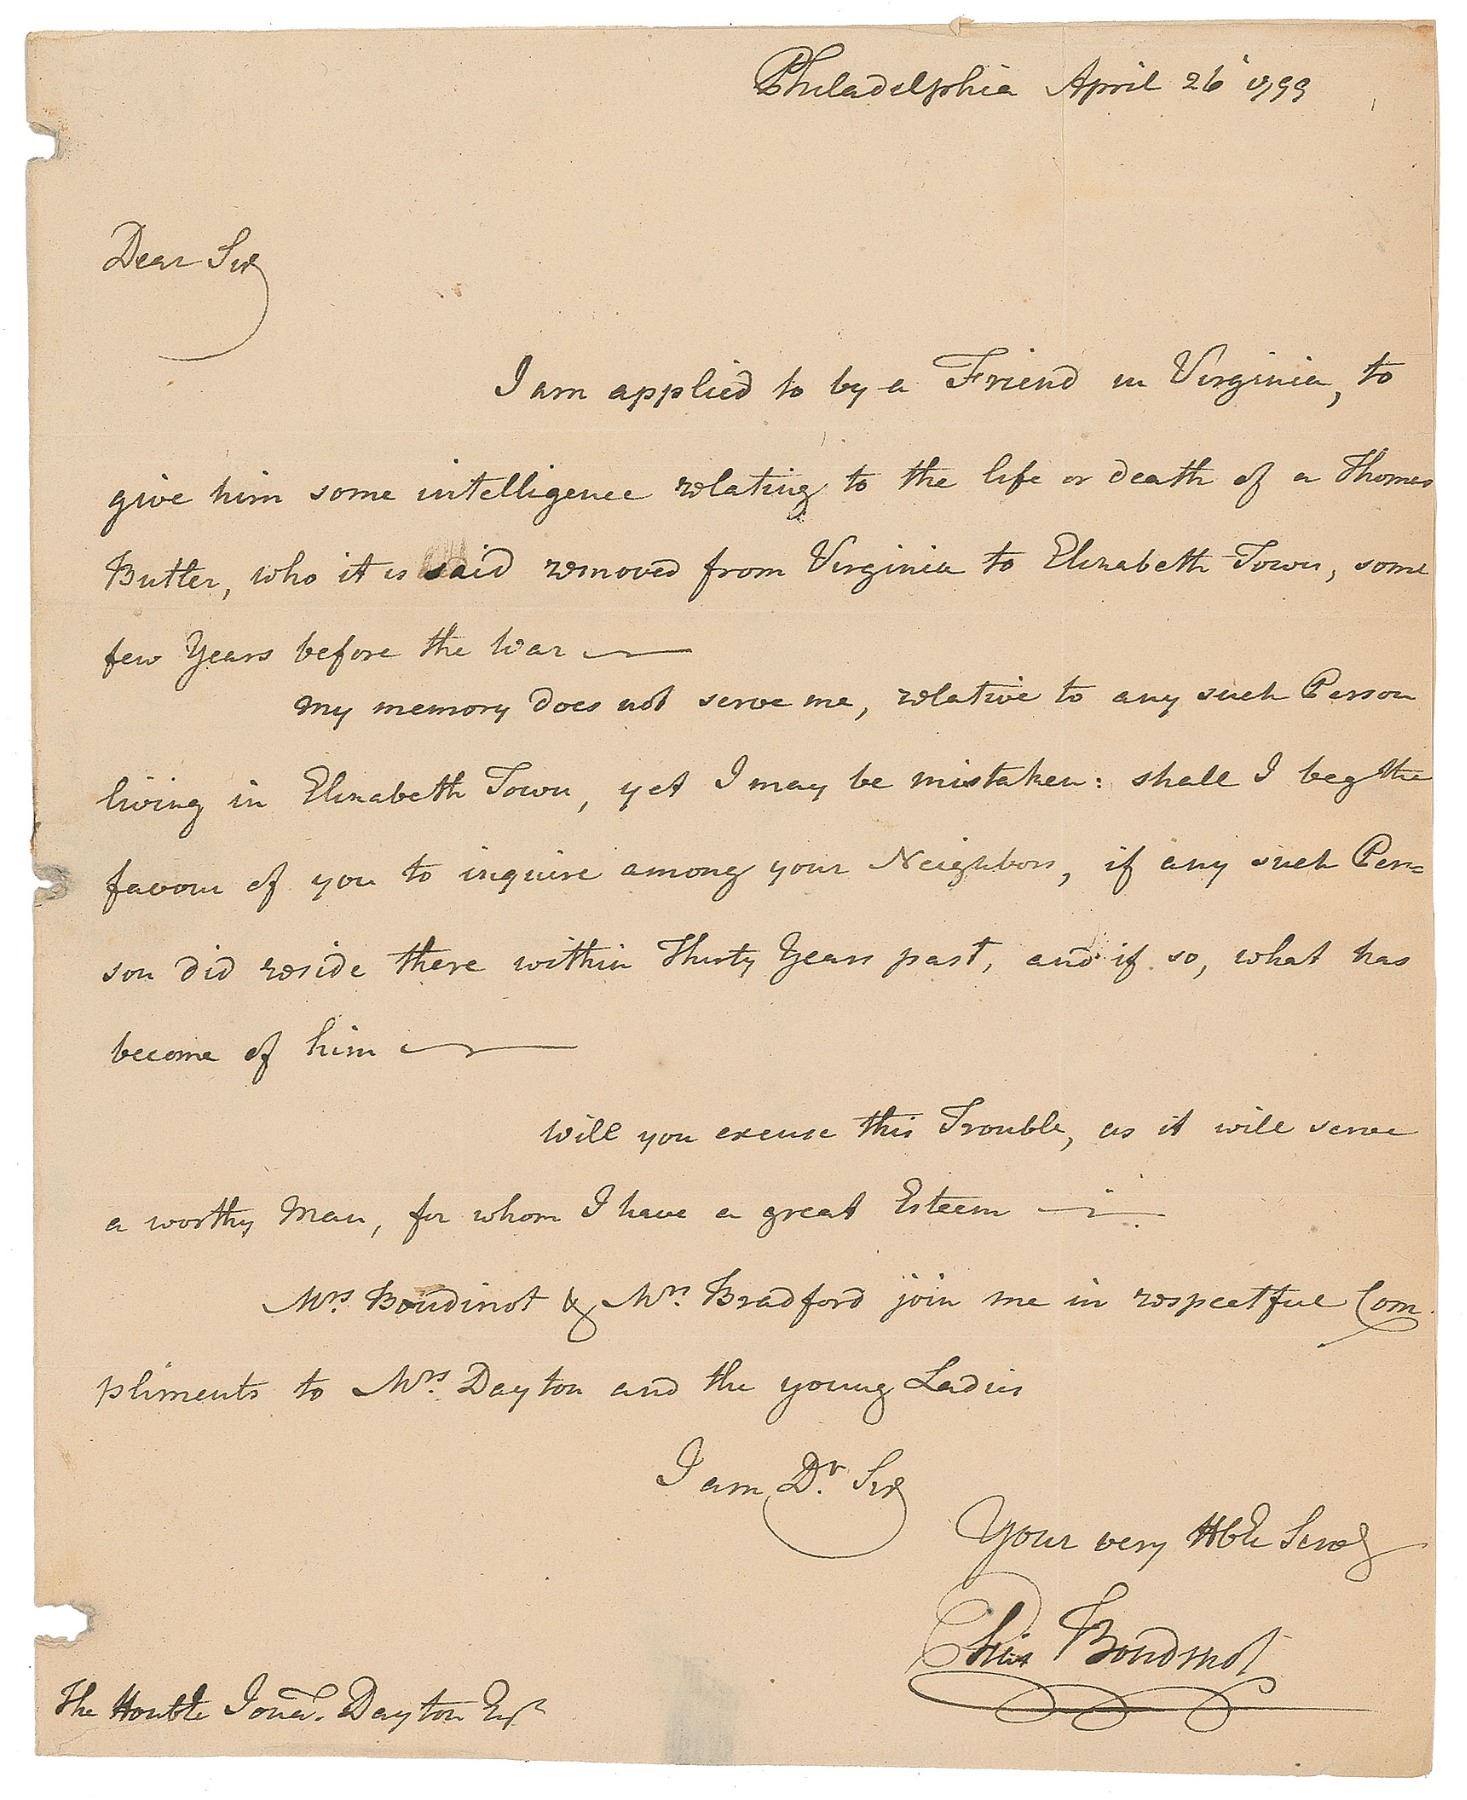 Philadelphia April 26 1799
Dear Sir
I am applied to by a Friend in Virginia, to
give him some intelligence relating to the life or death of a Thomas
Butler, who it is said removed from Virginia to Elizabeth Town, some
few Years before the War —
My memory does not serve me, relative to any such Person
living in Elizabeth Town, yet I may be mistaken: shall I beg the
favour of you to inquire among your Neighbors, if any such Per=
son did reside there within Thirty Years past, and if so, what has
become of him —
Will you excuse this Trouble, as it will serve
a worthy Man, for whom I have a great Esteem —
Mrs. Boudinot & Mrs. Bradford join me in respectful Com
pliments to Mrs. Dayton and the young Ladies
I am Dr. Sir
Your very Hble Servt
Elias Boudinot
The Honble Jona. Dayton Esqr